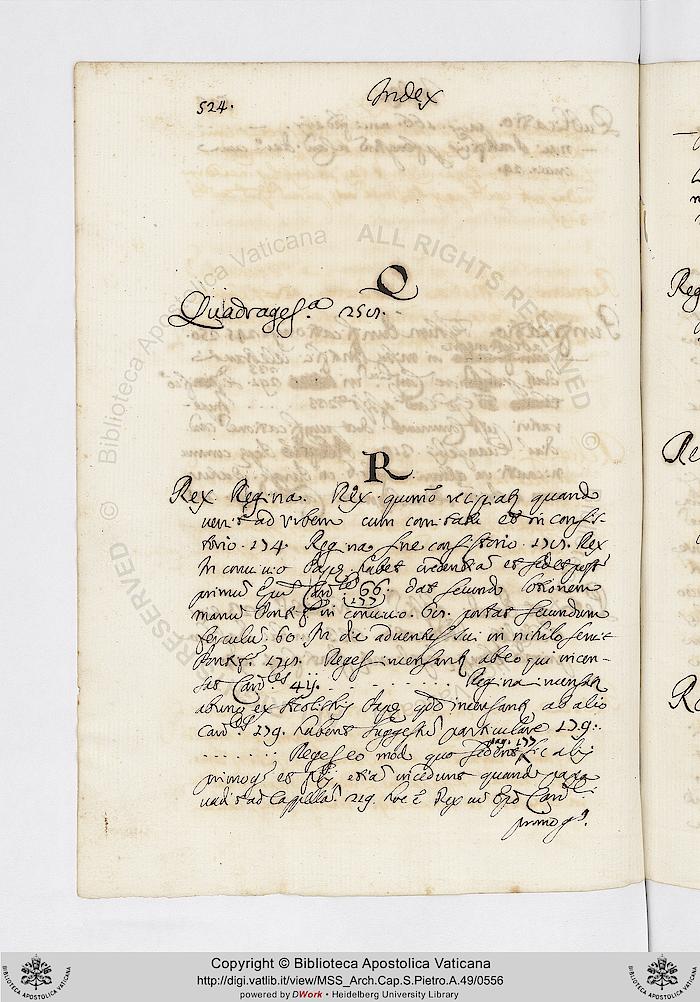 524.
Index
Q
Quadrages.ª
R
Rex Regina. Rex quomõ recipiatʳ quando
venit ad urbem cum comitatu et in consis-
torio. 174. Regina sine consistorio. Rex
In convivio Papę habet credentiã et sedet post
primũ Epũ Card.ˡᵉᵐ 66. dat secundo lotionem
177
manuũ Pontifˢ in convivio. portat secundum
ferculũ. 60. In die adventus sui in nihilo servit
Pontfⁱ. Reges incensantʳ ab eo qui incen-
sat Card.ˡᵉˢ Regina incensatʳ
ab uno ex Acolitis Papę qñdo incensantʳ ab alio
Card.ˡᵉˢ 179. habent suggestũ particulare 179.
pag. 177
Reges eo modo quo sedent sic alij
primog. et etiã incedunt quando papa
vadit ad Cappellã. 219. hoc ẽ Rex
primo gˢ.
Copyright © Biblioteca Apostolica Vaticana
http://digi.vatlib.it/view/MSS_Arch.Cap.S.Pietro.A.49/0556
powered by DWork • Heidelberg University Library
© Biblioteca Apostolica Vaticana ALL RIGHTS RESERVED